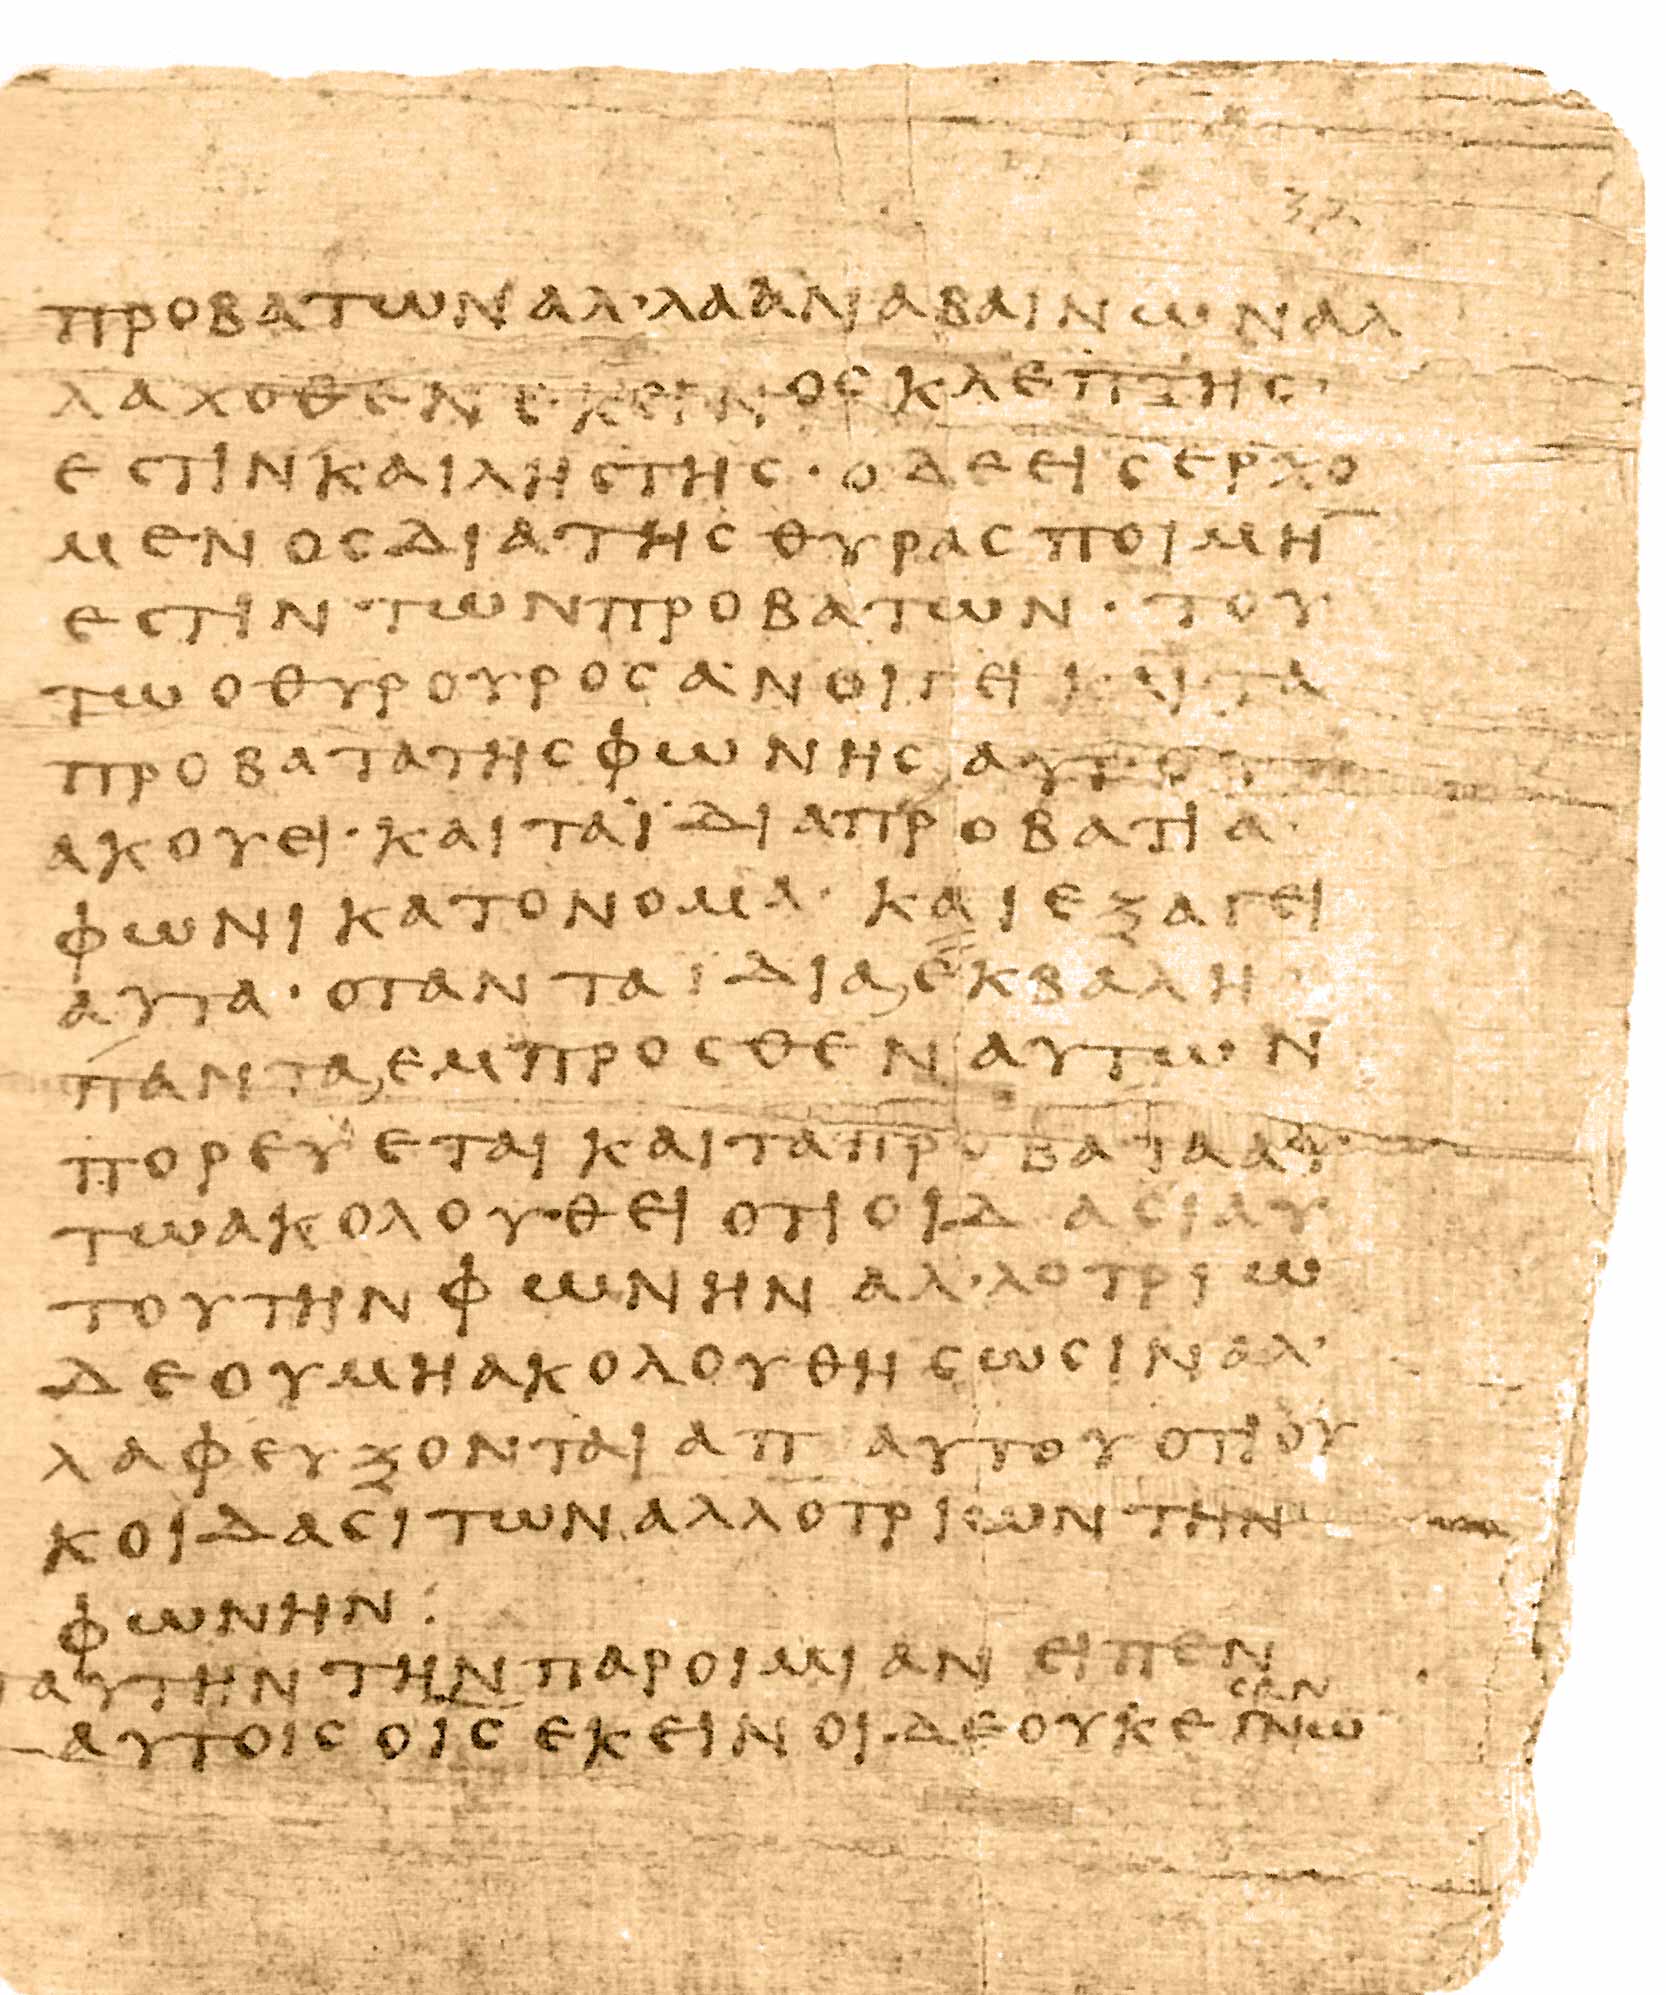 ΠΡΟΒΑΤΩΝ ΑΛ·ΛΑ ΑΝΑΒΑΙΝΩΝ ΑΛ
ΛΑΧΟΘΕΝ ΕΚΕΙΝΟΣ ΚΛΕΠΤΗΣ·
ΕΣΤΙΝ ΚΑΙ ΛΗΣΤΗΣ· Ο ΔΕ ΕΙΣΕΡΧΟ
ΜΕΝΟΣ ΔΙΑ ΤΗΣ ΘΥΡΑΣ ΠΟΙΜΗ̅
ΕΣΤΙΝ·ΤΩΝ ΠΡΟΒΑΤΩΝ· ΤΟΥ
ΤΩ Ο ΘΥΡΟΥΡΟΣ ΑΝΟΙΓΕΙ ΚΑΙ ΤΑ
ΠΡΟΒΑΤΑ ΤΗΣ ΦΩΝΗΣ ΑΥΤΟΥ
ΑΚΟΥΕΙ· ΚΑΙ ΤΑ ΪΔΙΑ ΠΡΟΒΑΤΙΑ·
ΦΩΝΙ ΚΑΤ ΟΝΟΜΑ· ΚΑΙ ΕΞΑΓΕΙ
ΑΥΤΑ· ΟΤΑΝ ΤΑ ΪΔΙΑ, ΕΚΒΑΛΗ·
ΠΑΝΤΑ, ΕΜΠΡΟΣΘΕΝ ΑΥΤΩΝ
ΠΟΡΕΥΕΤΑΙ ΚΑΙ ΤΑ ΠΡΟΒΑΤΑ ΑΥ
ΤΩ ΑΚΟΛΟΥ·ΘΕΙ ΟΤΙ ΟΙΔΑΣΙ ΑΥ
ΤΟΥ ΤΗΝ ΦΩΝΗΝ ΑΛ·ΛΟΤΡΙΩ
ΔΕ ΟΥ ΜΗ ΑΚΟΛΟΥΘΗΣΩΣΙΝ ΑΛ·
ΛΑ ΦΕΥΞΟΝΤΑΙ ΑΠ ΑΥΤΟΥ ΟΤΙ ΟΥ
Κ ΟΙΔΑΣΙ ΤΩΝ ΑΛΛΟΤΡΙΩΝ ΤΗΝ
ΦΩΝΗΝ:
ΤΑΥΤΗΝ ΤΗΝ ΠΑΡΟΙΜΙΑΝ ΕΙΠΕΝ
ΣΑΝ
ΑΥΤΟΙΣ Ο Ι̅Σ̅ ΕΚΕΙΝΟΙ·ΔΕ ΟΥΚ ΕΓΝΩ